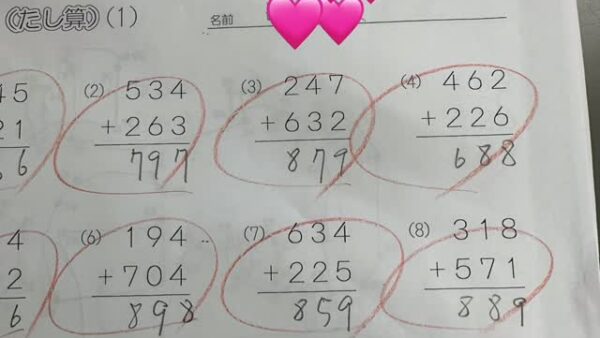 《たし算》(1) 名前
45 (2) 534 (3) 247 (4) 462
21 +263 +632 +226
66 797 879 688
4 (6) 194 (7) 634 (8) 318
2 +704 +225 +571
6 898 859 889